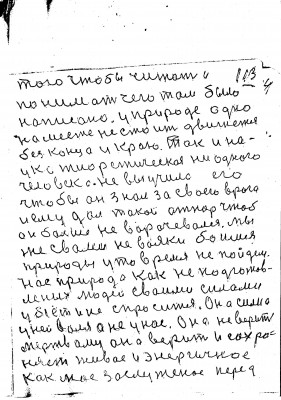 того чтобы читат и
113
понимат чего там было
написано. у природе одно
на месте не стоит движется
без конца и краю. Так и на-
ука теоретическая ни одного
человека. не выучила его
чтобы он знал за своего врага
ему дал такой отпор чтоб
он больше не ворочевался. мы
же своими
природы у то время не пойдем.
нас природа как не подготов-
леных людей своими силами
убьёт и не спросится. Она сильна
у ней воля а не у нас. Она не верит
мертвому она верит и сохра-
няет живае и энергичное
како мае заслуженое перед